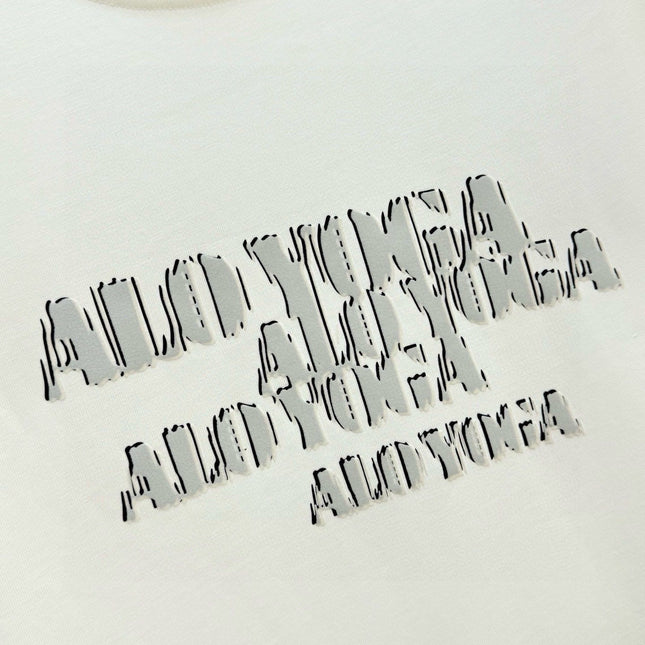 ALO YOGA
ALO YOGA
ALO YOGA
ALO YOGA